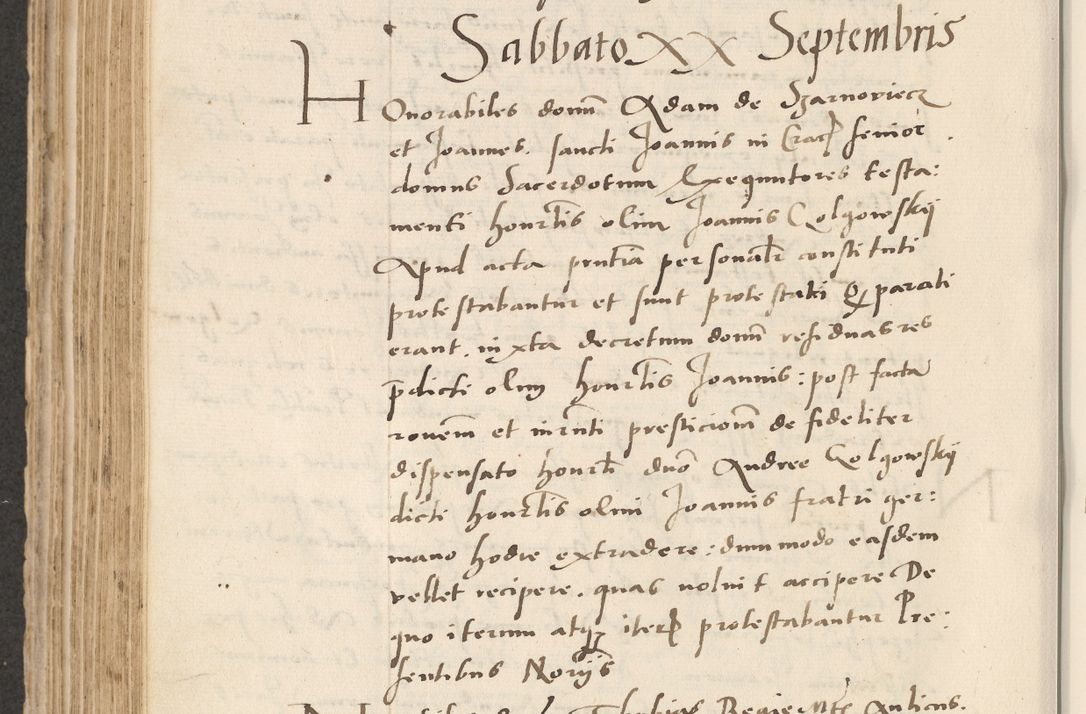 Sabbato XX Septembris
Honorabiles domī Adam de Szarnoviecz
et Joannes. sancti Joannis in Crac senior
domus Sacerdotum Exequutores testa:
menti honrlis olim Joannis Golgowskij
Apud acta pñtia personalr constituti
protestabantur et sunt protestati q parati
erant. iuxta decretum domī residuas res
p̄dicti olim honrlis Joannis: post facta
rōuem et iurnti presticionē de fideliter
dispensato honrli dnō Andree Golgowskij
dicti honrlis olim Joannis fratri ger:
mano hodie extradere: dummodo easdem
vellet recipere. quas noluit accipere De
quo iterum atq iter protestabantur Pre:
sentibus Norijs
Thobias Regie Mtis Aulicus.